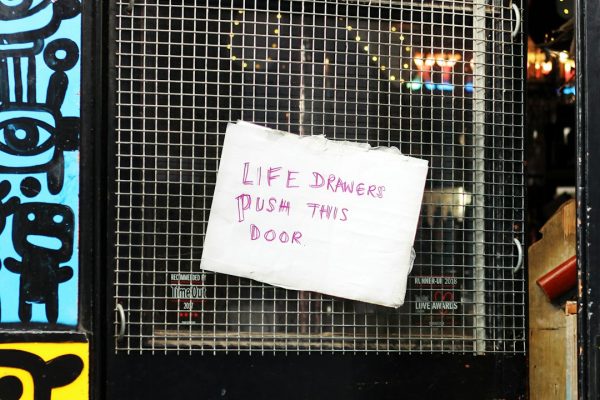 LIFE DRAWERS
PUSH THIS
DOOR
RECOMMENDED BY
TimeOut
2017
RUNNER-UP 2018
LOVE AWARDS